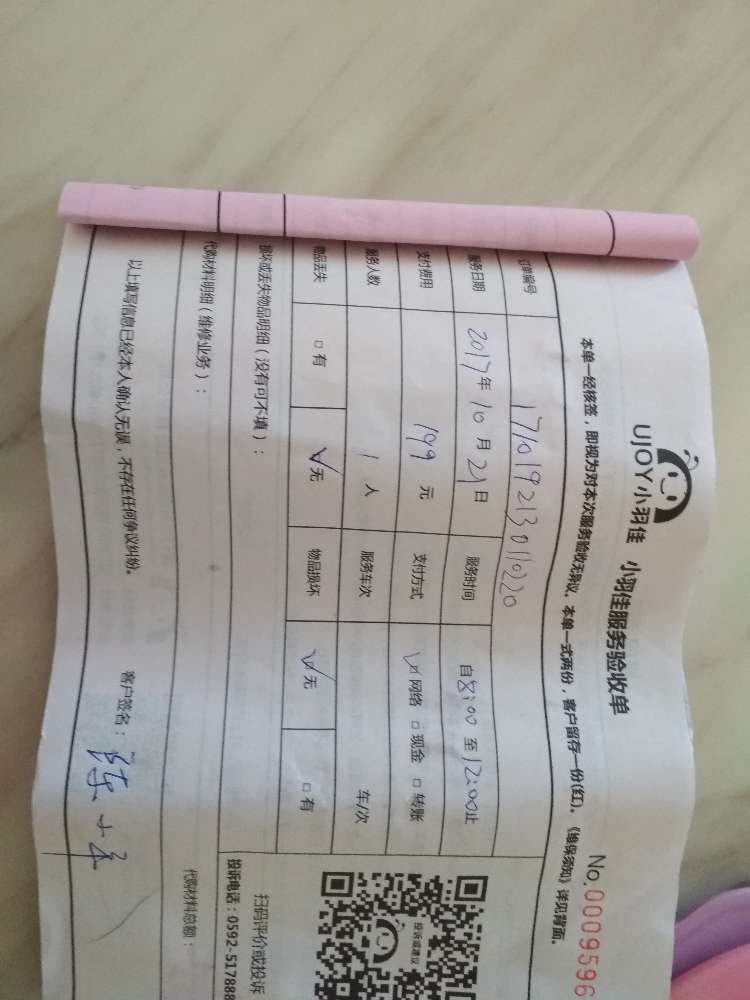 UJOY小羽佳 小羽佳服务验收单 No.0009596
本单一经核签，即视为对本次服务验收无异议。本单一式两份，客户留存一份(红)。《维保须知》详见背面。
订单编号 1710192130110220
服务日期 2017年10月21日 服务时间 自8:00至12:00止
支付费用 199元 支付方式 ☑网络 □现金 □转账
服务人数 1人 服务车次 车/次
物品丢失 □有 ☑无 物品损坏 ☑无 □有
损坏或丢失物品明细（没有可不填）：
代购材料明细（维修业务）：
代购材料总额：
以上填写信息已经本人确认无误，不存在任何争议纠纷。 客户签名：陈
投诉或建议
扫码评价或投诉
投诉电话：0592-517888